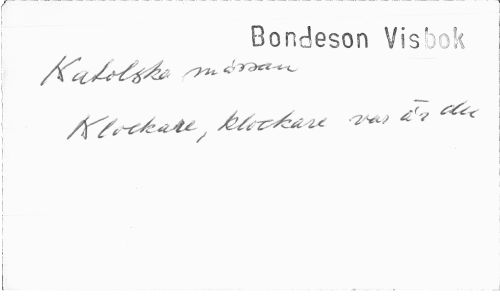 Bondeson Visbok
Katolska mässan
Klockare, klockare var är du